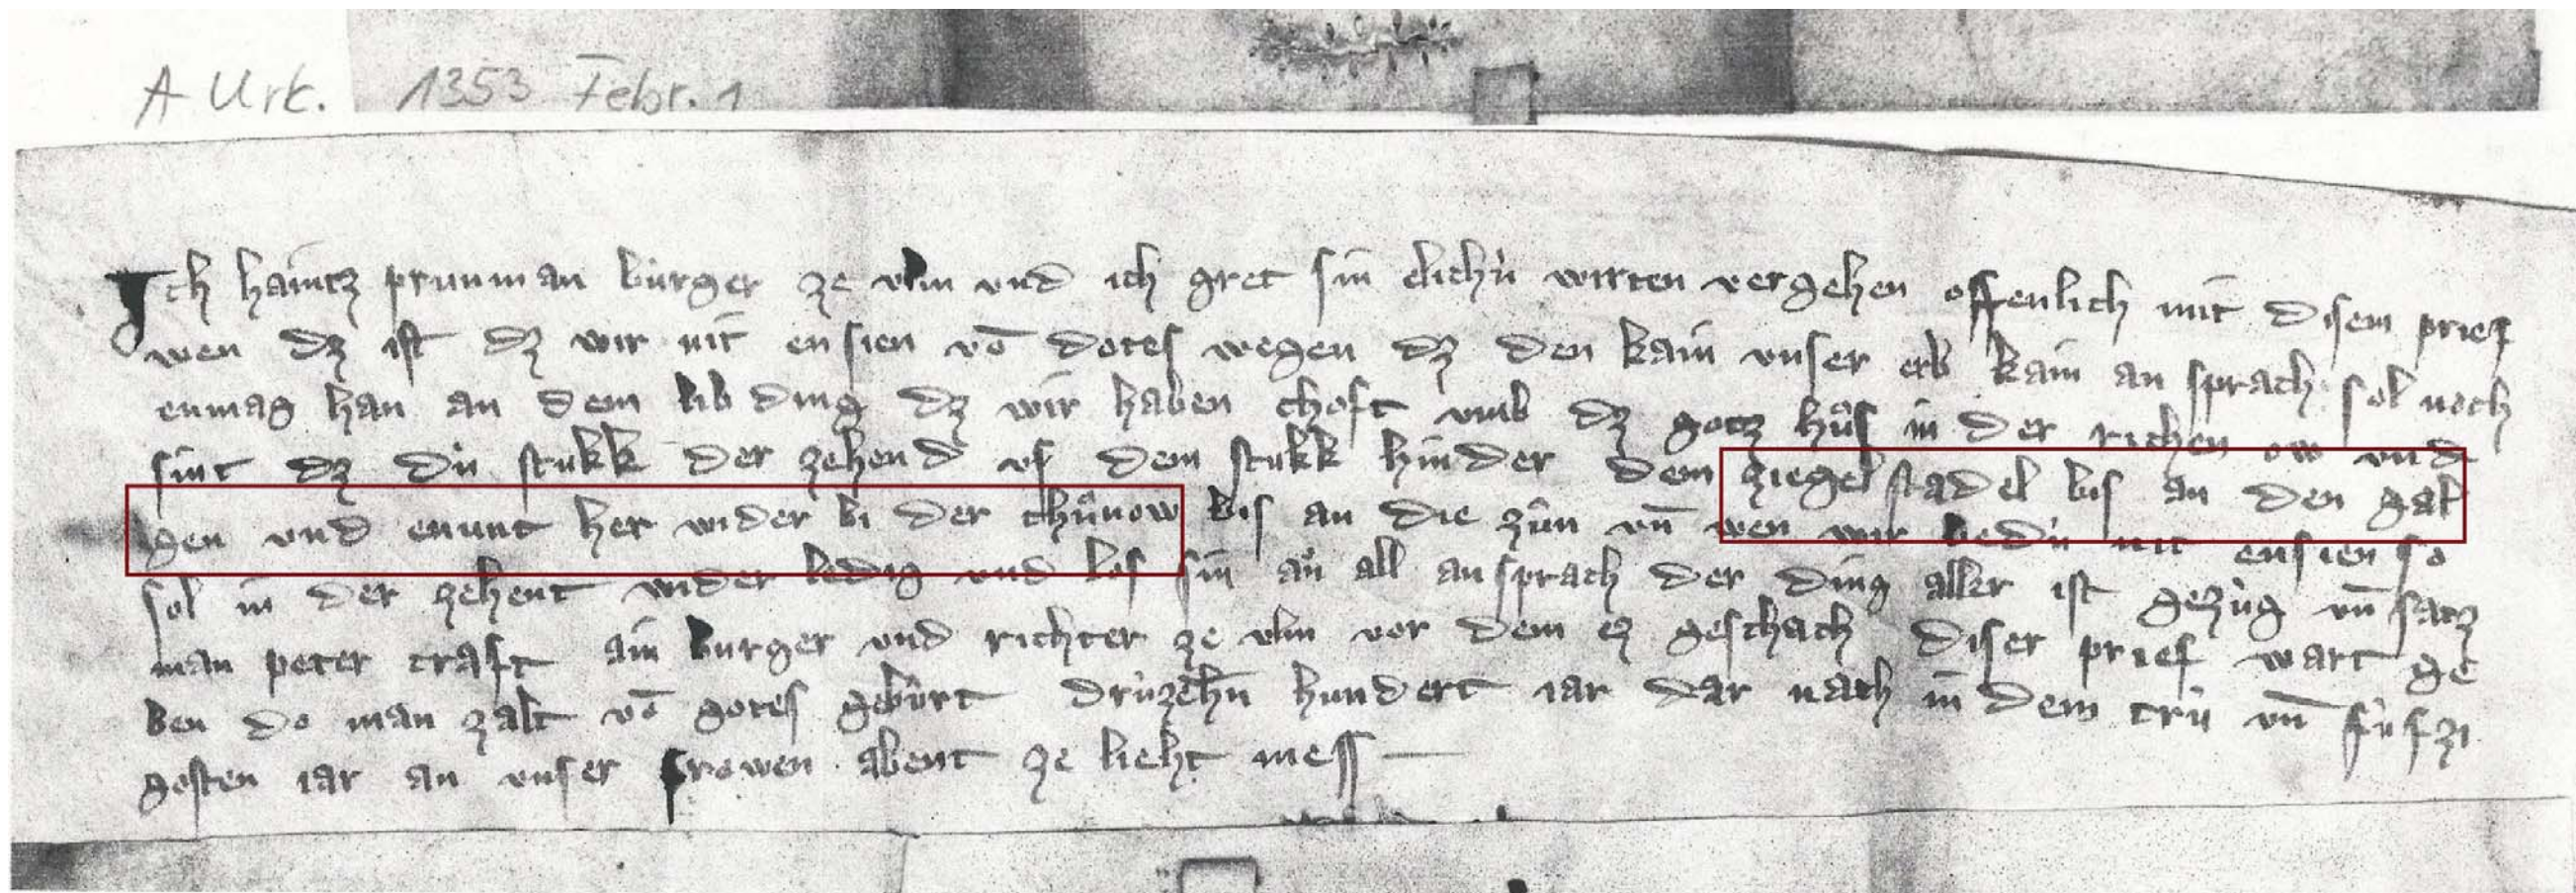 A Urk. 1353 Febr. 1
Ich haintz prunman burger ze vlm vnd ich gret sin elichù wirten vergehen offenlich mit disem prief
wen dz ist dz wir nit ensien vō dotes wegen dz den kain vnser erb kain an sprach sol noch
enmag han an dem lib ding dz wir haben choft vmb dz gotz hůs in der richen ow vnd
sint dz dù stukk der zehend vf dem stukk hinder dem ziegel stadel bis an den gal
gen vnd enunt her wider bi der thůnow bis an die zûn vn̄ wen wir bedù nit ensien so
sol in der zehent wider ledig vnd los sin an all an sprach der ding aller ist gezùg vn̄ satz
man peter craft ain burger vnd richter ze vlm vor dem ez geschach diser prief wart ge
ben do man zalt vō gotes geburt drùzehn̄ hundert iar dar nach in dem trù vn̄ fùfzi
gosten iar an vnser frowen abent ze lieht mess